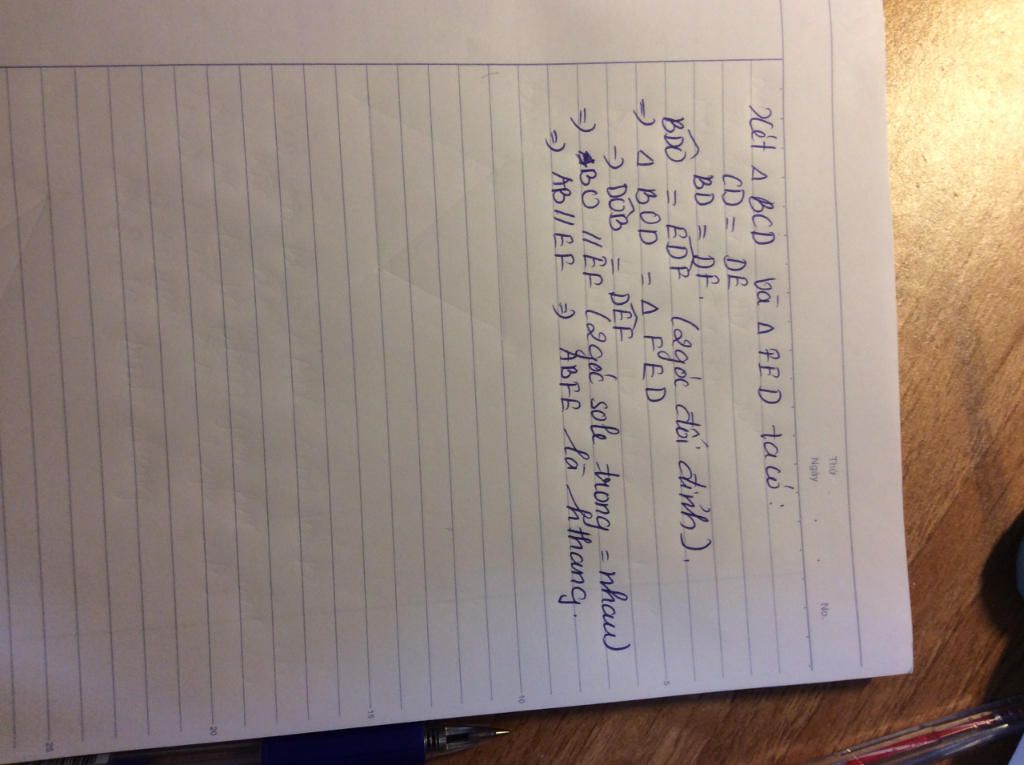 Thứ
Ngày . .
No.
Xét Δ BCD và Δ FED ta có:
CD = DE
BD = DF.
BDC = EDF (2 góc đối đỉnh).
=> Δ BCD = Δ FED
=> DCB = DEF
=> BC // EF (2 góc sole trong = nhau)
=> AB // EF => ABFE là hthang.
5
10
15
20
25